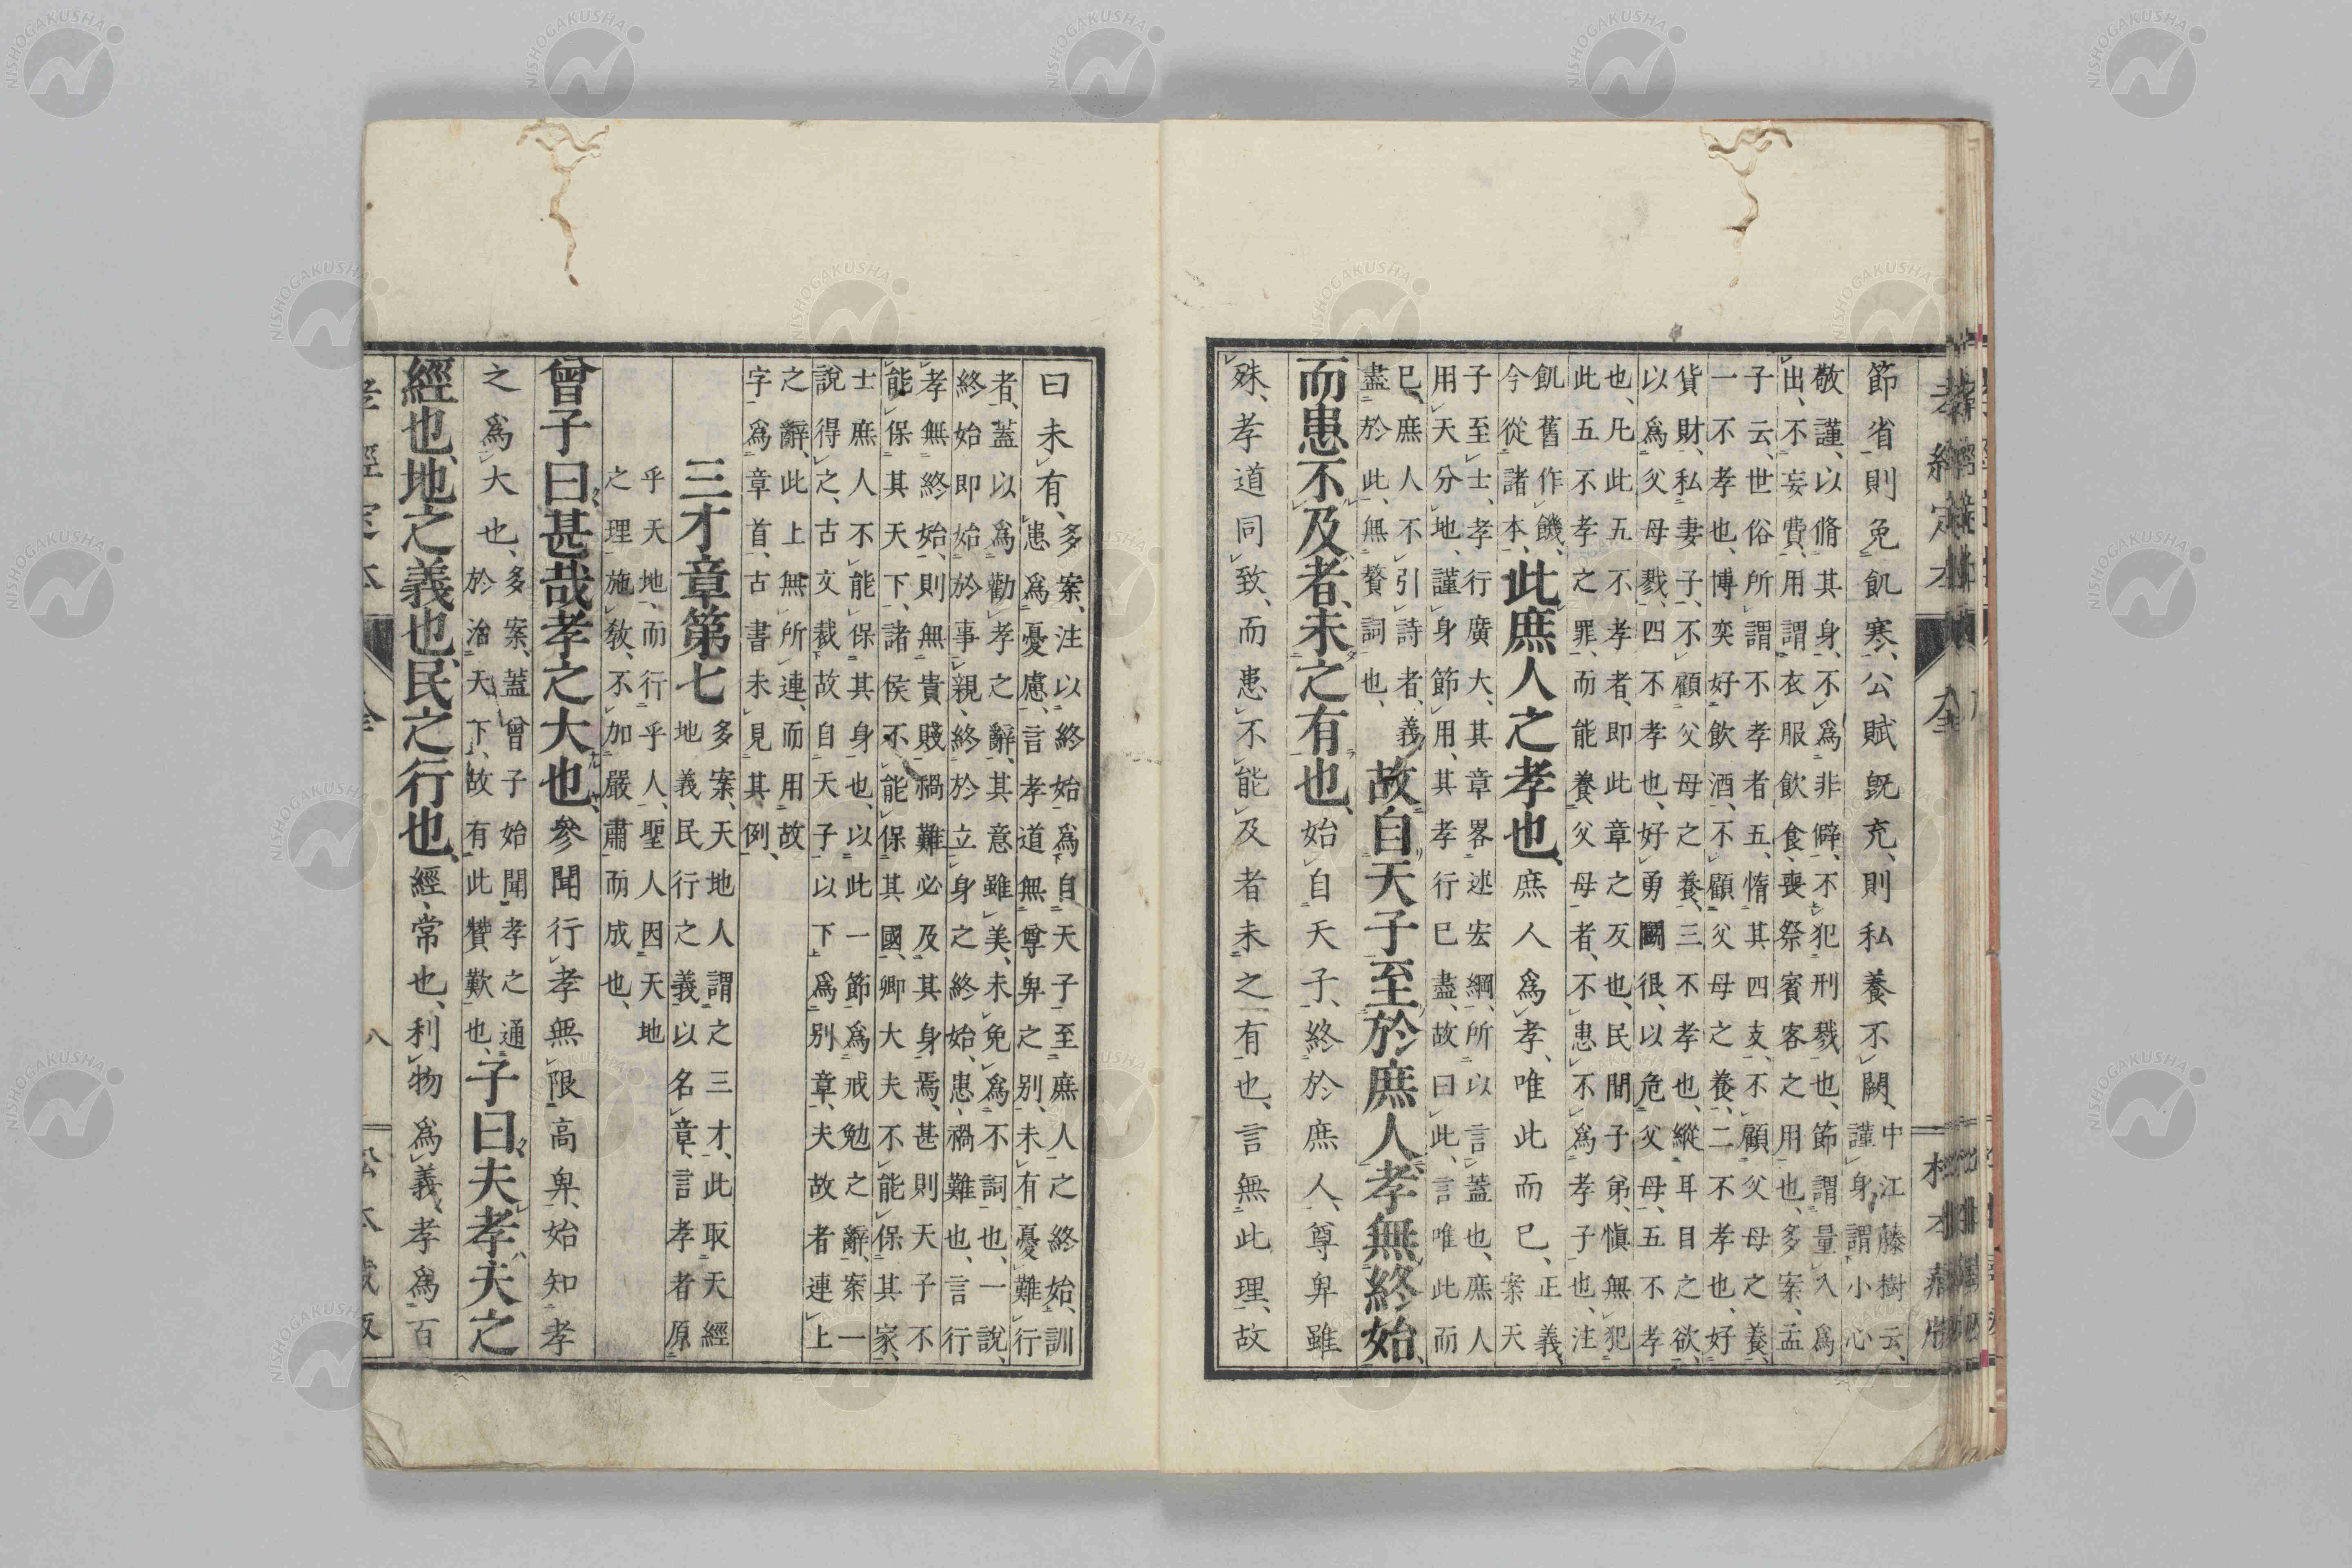 節省則免飢寒、公賦既充、則私養不闕、中江藤樹云、
謹身謂小心
敬謹、以脩其身、不爲非僻、不犯刑戮也、節謂量入爲
出、不妄費、用謂衣服飲食、喪祭賓客之用也、多案、孟
子云、世俗所謂不孝者五、惰其四支、不顧父母之養、
一不孝也、博奕好飲酒、不顧父母之養、二不孝也、好
貨財、私妻子、不顧父母之養、三不孝也、縱耳目之欲、
以爲父母戮、四不孝也、好勇鬭很、以危父母、五不孝
也、凡此五不孝者、即此章之反也、民間子弟、愼無犯
此五不孝之罪、而能養父母者、不患不爲孝子也、注
飢舊作饑、
今從諸本、
此庶人之孝也、
庶人爲孝、唯此而已、
正義、
案天
子至士、孝行廣大、其章畧述宏綱、所以言蓋也、庶人
用天分地、謹身節用、其孝行已盡、故曰此、言唯此而
已、庶人不引詩者、義
盡於此、無贅詞也、
故自天子至於庶人、孝無終始、
而患不及者、未之有也、
始自天子、終於庶人、尊卑雖
殊、孝道同致、而患不能及者未之有也、言無此理、故
曰未有、
多案、注以終始、爲自天子至庶人之終始、訓
患爲憂慮、言孝道無尊卑之別、未有憂難行
者、蓋以爲勸孝之辭、其意雖美、未免爲不詞也、一說、
終始即始於事親、終於立身之終始、患、禍難也、言行
孝無終始、則無貴賤禍難必及其身焉、甚則天子不
能保其天下、諸侯不能保其國、卿大夫不能保其家、
士庶人不能保其身也、以此一節爲戒勉之辭、案一
說得之、古文裁故自天子以下爲別章、夫故者連上
之辭、此上無所連、而用故
字爲章首、古書未見其例、
三才章第七
多案、天地人謂之三才、此取天經
地義民行之義、以名章、言孝者原
乎天地、而行乎人、聖人因天地
之理施敎、不加嚴肅而成也、
曾子曰、甚哉孝之大也、
參聞行孝無限高卑、始知孝
之爲大也、
多案、蓋曾子始聞孝之通
於治天下、故有此贊歎也、
子曰、夫孝、天之
經也、地之義也、民之行也、
經、常也、利物爲義、孝爲百
八